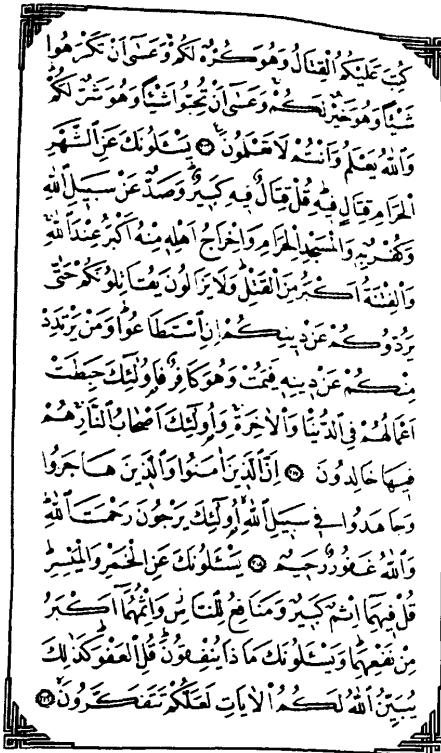 كُتِبَ عَلَيْكُمُ الْقِتَالُ وَهُوَ كُرْهٌ لَكُمْ وَعَسٰٓى اَنْ تَكْرَهُوا
شَيْـًٔا وَهُوَ خَيْرٌ لَكُمْ وَعَسٰٓى اَنْ تُحِبُّوا شَيْـًٔا وَهُوَ شَرٌّ لَكُمْ
وَاللّٰهُ يَعْلَمُ وَاَنْتُمْ لَا تَعْلَمُونَ ﴿٢١٦﴾ يَسْـَٔلُونَكَ عَنِ الشَّهْرِ
الْحَرَامِ قِتَالٍ فِيهِ قُلْ قِتَالٌ فِيهِ كَبِيرٌ وَصَدٌّ عَنْ سَبِيلِ اللّٰهِ
وَكُفْرٌ بِهِ وَالْمَسْجِدِ الْحَرَامِ وَاِخْرَاجُ اَهْلِهِ مِنْهُ اَكْبَرُ عِنْدَ اللّٰهِ
وَالْفِتْنَةُ اَكْبَرُ مِنَ الْقَتْلِ وَلَا يَزَالُونَ يُقَاتِلُونَكُمْ حَتّٰى
يَرُدُّوكُمْ عَنْ دِينِكُمْ اِنِ اسْتَطَاعُوا وَمَنْ يَرْتَدِدْ
مِنْكُمْ عَنْ دِينِهِ فَيَمُتْ وَهُوَ كَافِرٌ فَاُولٰٓئِكَ حَبِطَتْ
اَعْمَالُهُمْ فِي الدُّنْيَا وَالْاٰخِرَةِ وَاُولٰٓئِكَ اَصْحَابُ النَّارِ هُمْ
فِيهَا خَالِدُونَ ﴿٢١٧﴾ اِنَّ الَّذِينَ اٰمَنُوا وَالَّذِينَ هَاجَرُوا
وَجَاهَدُوا فِي سَبِيلِ اللّٰهِ اُولٰٓئِكَ يَرْجُونَ رَحْمَتَ اللّٰهِ
وَاللّٰهُ غَفُورٌ رَحِيمٌ ﴿٢١٨﴾ يَسْـَٔلُونَكَ عَنِ الْخَمْرِ وَالْمَيْسِرِ
قُلْ فِيهِمَٓا اِثْمٌ كَبِيرٌ وَمَنَافِعُ لِلنَّاسِ وَاِثْمُهُمَٓا اَكْبَرُ
مِنْ نَفْعِهِمَا وَيَسْـَٔلُونَكَ مَاذَا يُنْفِقُونَ قُلِ الْعَفْوَ كَذٰلِكَ
يُبَيِّنُ اللّٰهُ لَكُمُ الْاٰيَاتِ لَعَلَّكُمْ تَتَفَكَّرُونَ ﴿٢١٩﴾